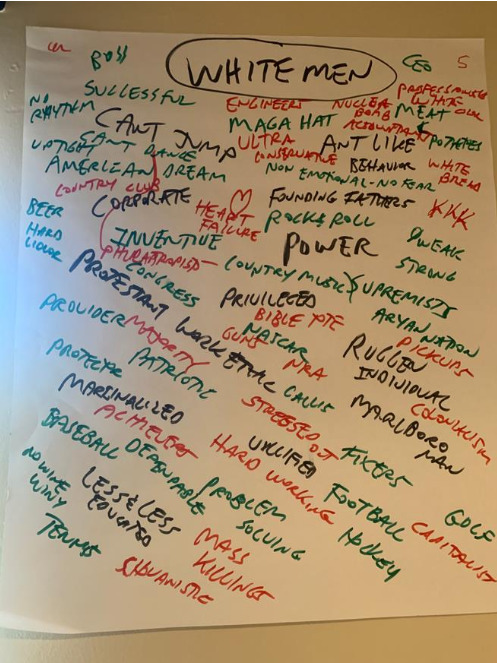 BOSS
WHITE MEN
CEO
S
NO RHYTHM
SUCCESSFUL
ENGINEERS
NUCLEAR BOMB
PROFESSIONALS
WHITE
MEAT & POTATOES
CAN'T JUMP
MAGA HAT
ACCOUNTANT
UPTIGHT
CANT DANCE
ULTRA CONSERVATIVE
ANT LIKE BEHAVIOR
AMERICAN DREAM
NON EMOTIONAL - NO FEAR
WHITE BREAD
COUNTRY CLUB
CORPORATE
HEART FAILURE
FOUNDING FATHERS
KKK
BEER
HARD LIQUOR
ROCK & ROLL
INVENTIVE
POWER
WEAK
STRONG
PHILANTROPIST
CONGRESS
COUNTRY MUSIC
SUPREMISTS
PROTESTANT WORK ETHIC
PRIVILEGED
ARYAN NATION
PROVIDER
MAJORITY
BIBLE
NASCAR
PICKUPS
GUNS
NRA
RUGGED INDIVIDUAL
PROTECTOR
PATRIOTIC
COLONIALISM
MARGINALIZED
STRESSED OUT
MARLBORO MAN
ACHIEVERS
BASEBALL
DEPENDABLE
HARD WORKING
FIXERS
NO WINE
LESS & LESS EDUCATED
PROBLEM SOLVING
FOOTBALL
GOLF
HOCKEY
CAPITALIST
TENNIS
MASS KILLINGS